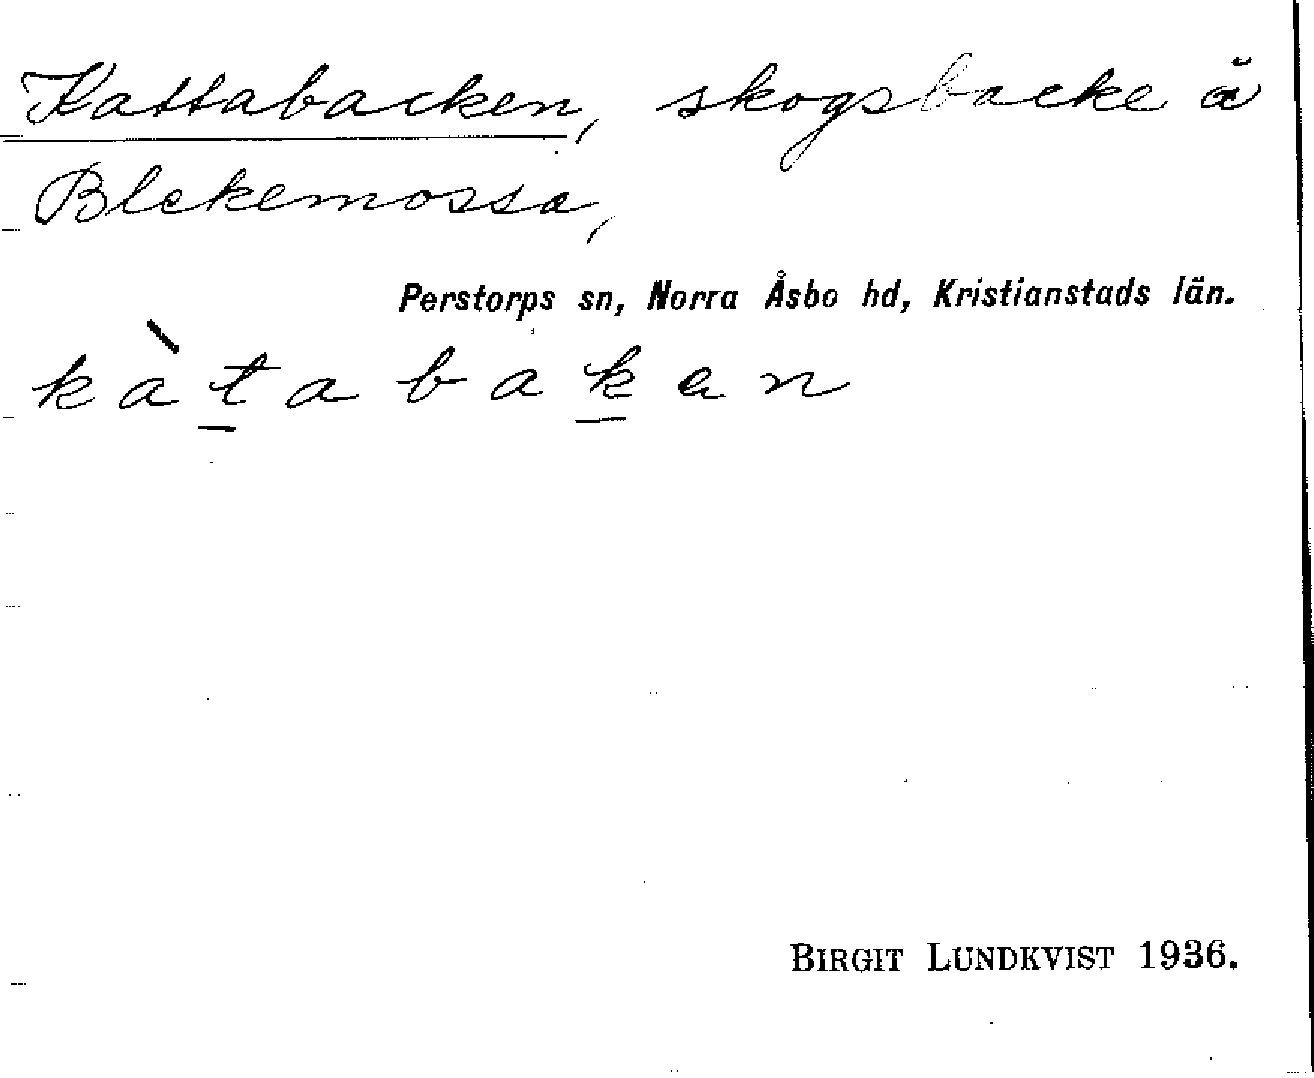 Kattabacken, skogsbacke å
Blekemossa,
Perstorps sn, Norra Åsbo hd, Kristianstads län.
kàtabakan
BIRGIT LUNDKVIST 1936.